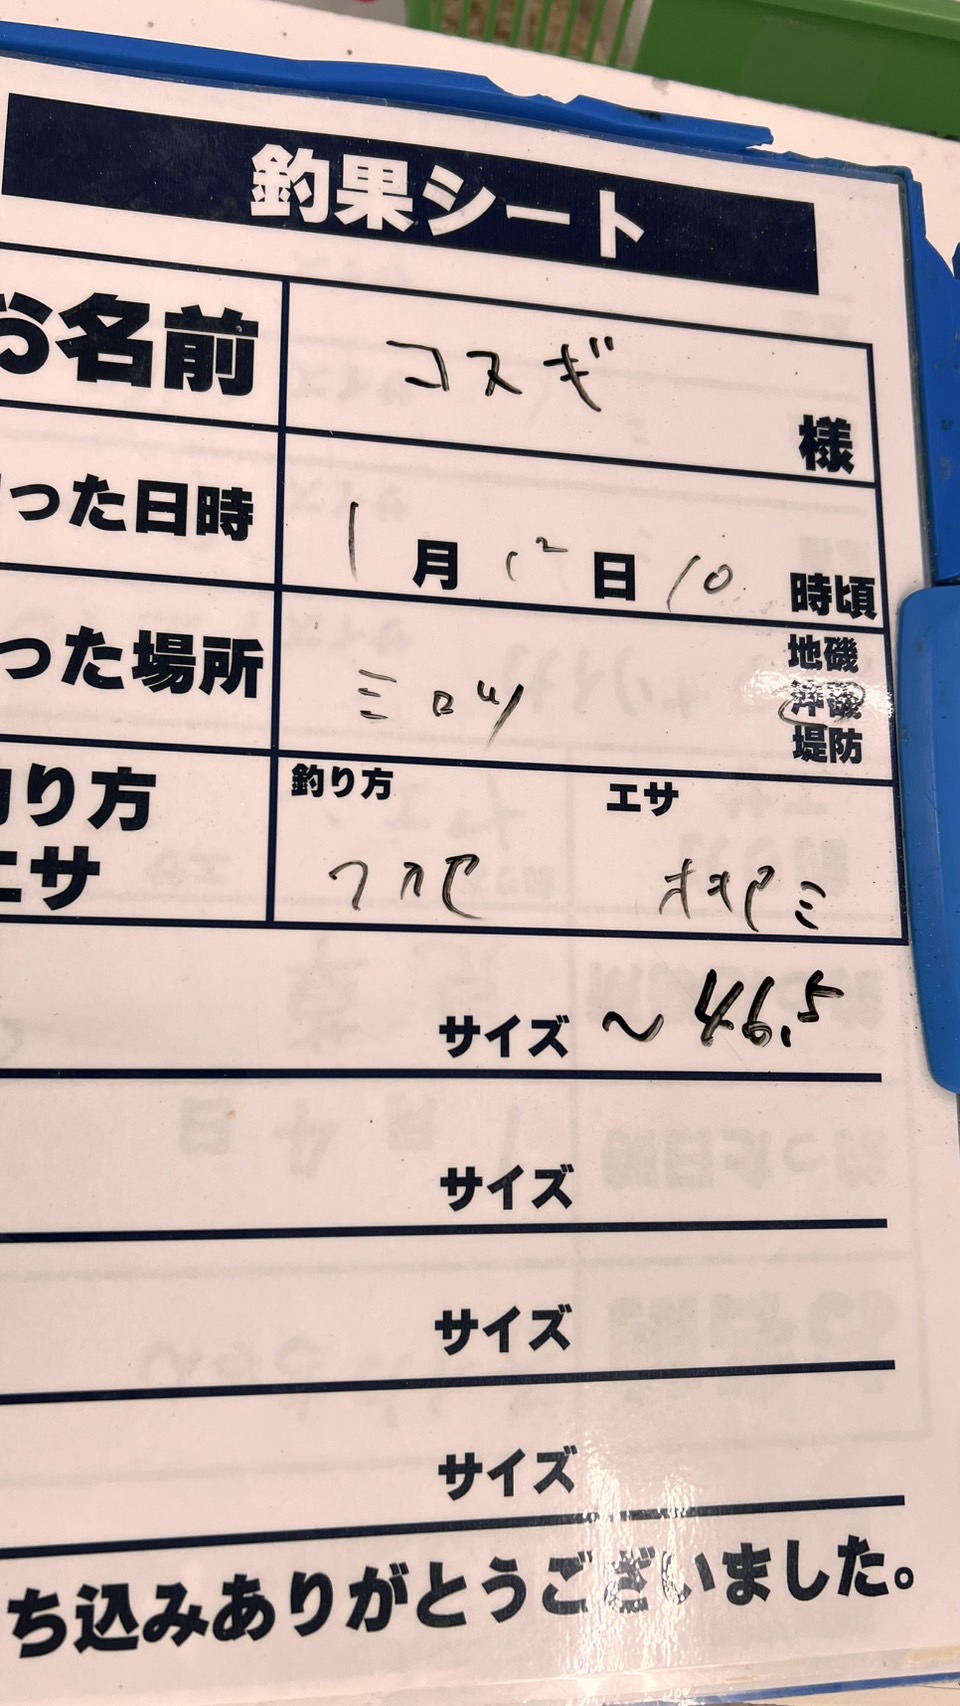 釣果シート
お名前 コスギ 様
った日時 1月12日10時頃
った場所 ミロツ 地磯
沖磯
堤防
釣り方 釣り方 エサ
エサ フカセ オキアミ
サイズ ~46.5
サイズ
サイズ
サイズ
ち込みありがとうございました。